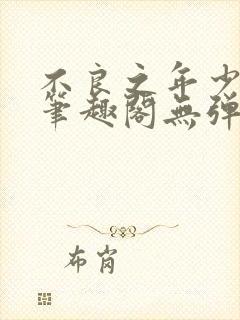 不良之年少
筆趣閣無弹
布肖